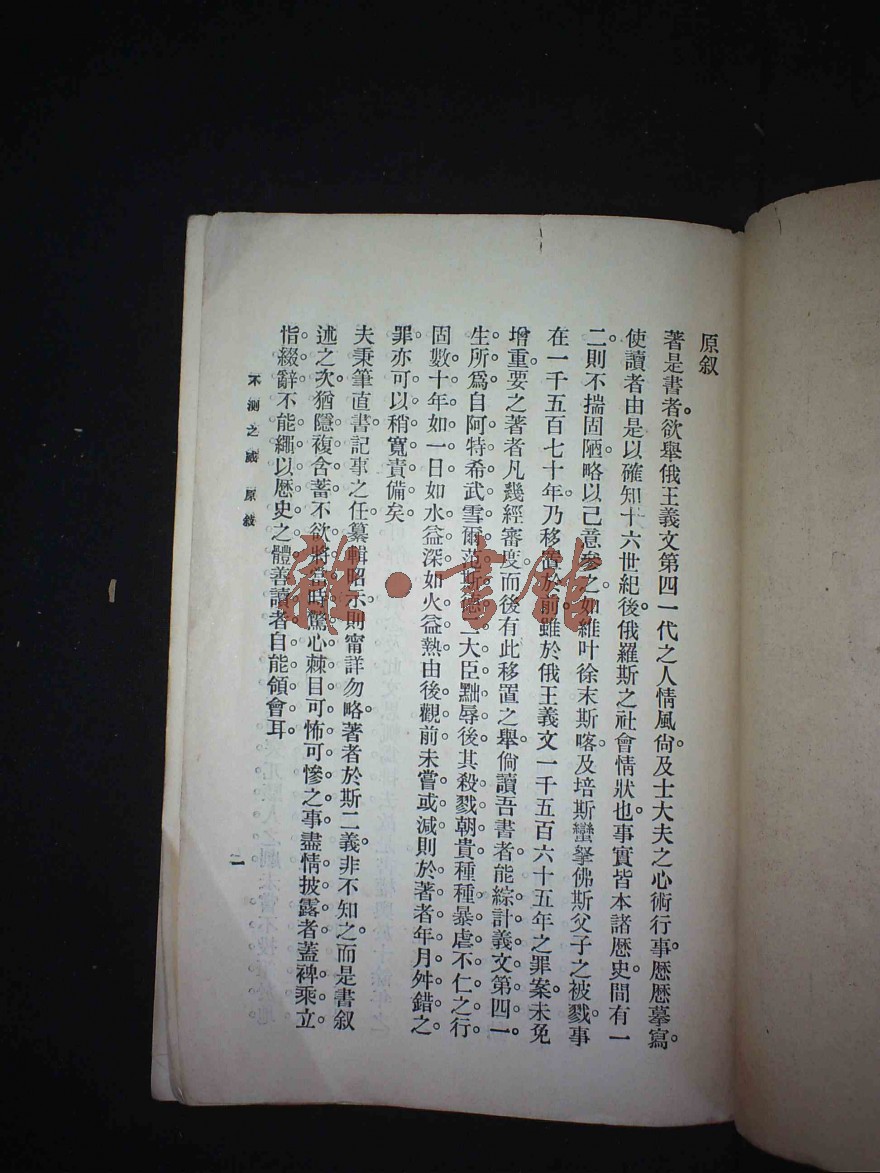 原叙
著是書者。欲舉俄王義文第四一代之人情風尙。及士大夫之心術行事。歷歷摹寫。
使讀者由是以確知十六世紀後。俄羅斯之社會情狀也。事實皆本諸歷史。間有一
二。則不揣固陋。略以己意參之。如維叶徐末斯喀及培斯蠻拏佛斯父子之被戮。事
在一千五百七十年。乃移置於前。雖於俄王義文一千五百六十五年之罪案。未免
增重要之著者凡幾經審度。而後有此移置之舉。倘讀吾書者。能綜計義文第四一
生所爲。自阿特希武雪爾范斯德二大臣黜辱後。其殺戮朝貴。種種暴虐不仁之行
固數十年如一日。如水益深。如火益熱。由後觀前。未嘗或減。則於著者年月舛錯之
罪。亦可以稍寬責備矣。
夫秉筆直書。記事之任。纂輯昭示。則甯詳勿略。著者於斯二義。非不知之。而是書叙
述之次。猶隱複含蓄。不欲將當時驚心棘目可怖可慘之事。盡情披露者。蓋稗乘立
指。綴辭不能繩以歷史之體。善讀者自能領會耳。
不測之威 原敍
一
雜·書館